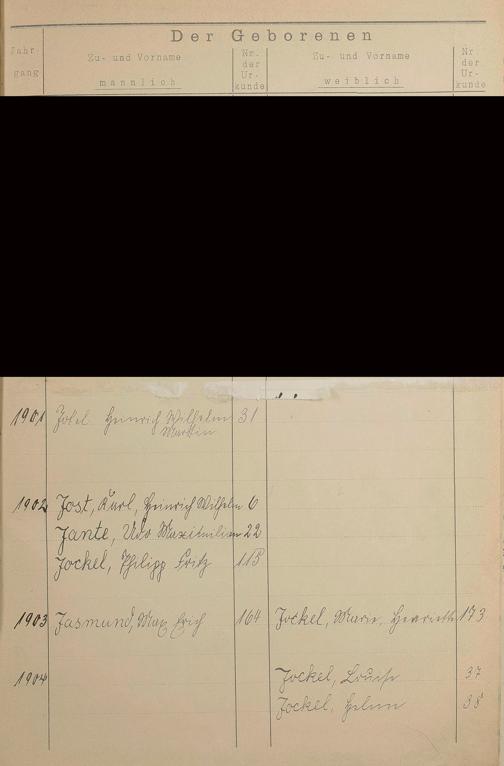 Der Geborenen
Jahr-
gang
Zu- und Vorname
männlich
Nr.
der
Ur-
kunde
Zu- und Vorname
weiblich
Nr
der
Ur-
kunde
1901 Jotel Heinrich Wilhelm 31
Martin
1902 Jost, Karl, Heinrich Wilhelm 6
Jante, Udo Maximilian 22
Jockel, Philipp Fritz 115
1903 Jasmund, Max Erich 164 Jockel, Marie, Henriette 173
1904 Jockel, Louise 37
Jockel, Helene 38